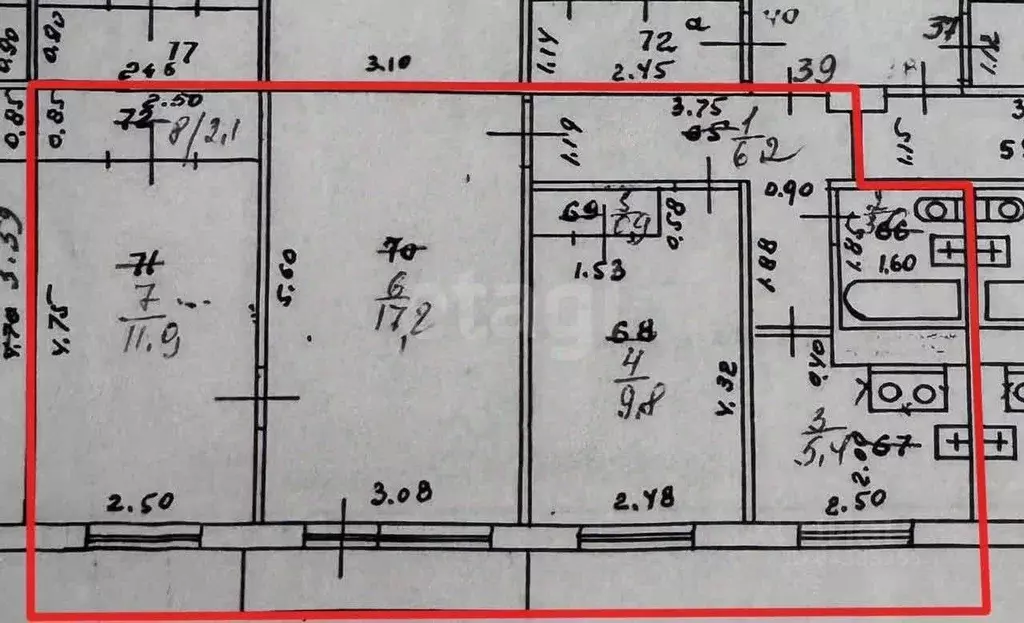 0.90
0.90
77
2.46
3.10
1.14
72
2.45
а
40
39
37
1.12
0,85
0.85
2.50
72
8/2,1
1.19
3.75
65
1
6 2
1.15
0.90
69
5
0.58
1.53
2
66
1.85
1.60
1.88
3.59
4.70
4.75
71
7
11.9
5.60
70
6
17,2
etagi
68
4
9,8
4.32
0,40
3
5,4
67
2.00
2.50
3.08
2.48
2.50